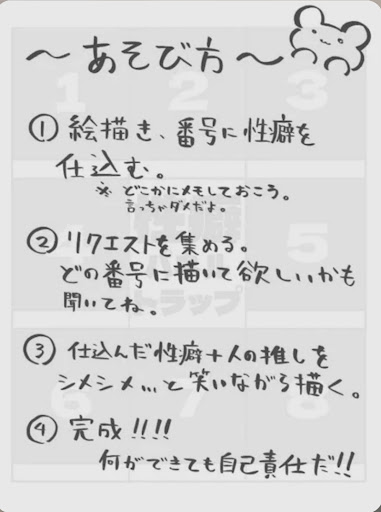 ～あそび方～
① 絵描き、番号に性癖を
仕込む。
※ どこかにメモしておこう。
言っちゃダメだよ。
② リクエストを集める。
どの番号に描いて欲しいかも
聞いてね。
③ 仕込んだ性癖＋人の推しを
シメシメ...と笑いながら描く。
④ 完成!!!!
何ができても自己責任だ!!
1 2 3
5
トラップ
6 7 8